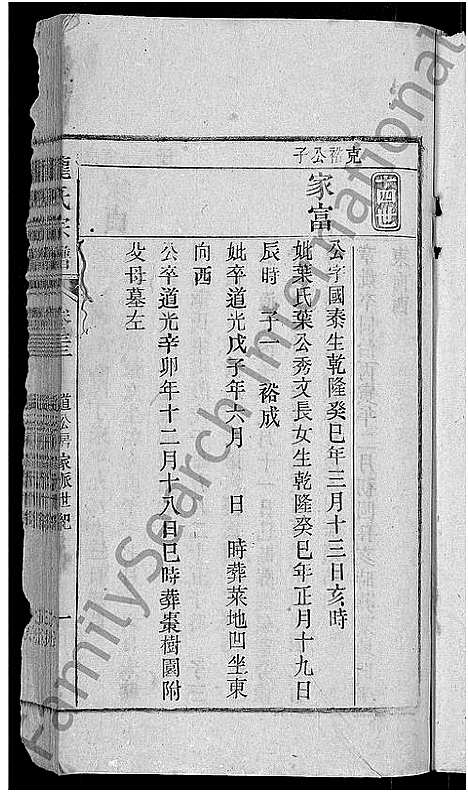 十四世
克裕公子
家富
公字國泰生乾隆癸巳年三月十三日亥時
妣葉氏葉公秀文長女生乾隆癸巳年正月十九日
辰時 子一 裕成
妣卒道光戊子年六月 日 時葬菜地凹坐東
向西
公卒道光辛卯年十二月十八日巳時葬棗樹園附
父母墓左
龍氏宗譜
卷三
道公房家派世紀
一
FamilySearch International